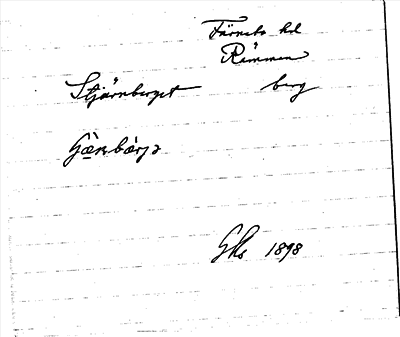 Färnebo hd
Rämmen
Stjärnberget berg
GKs 1898